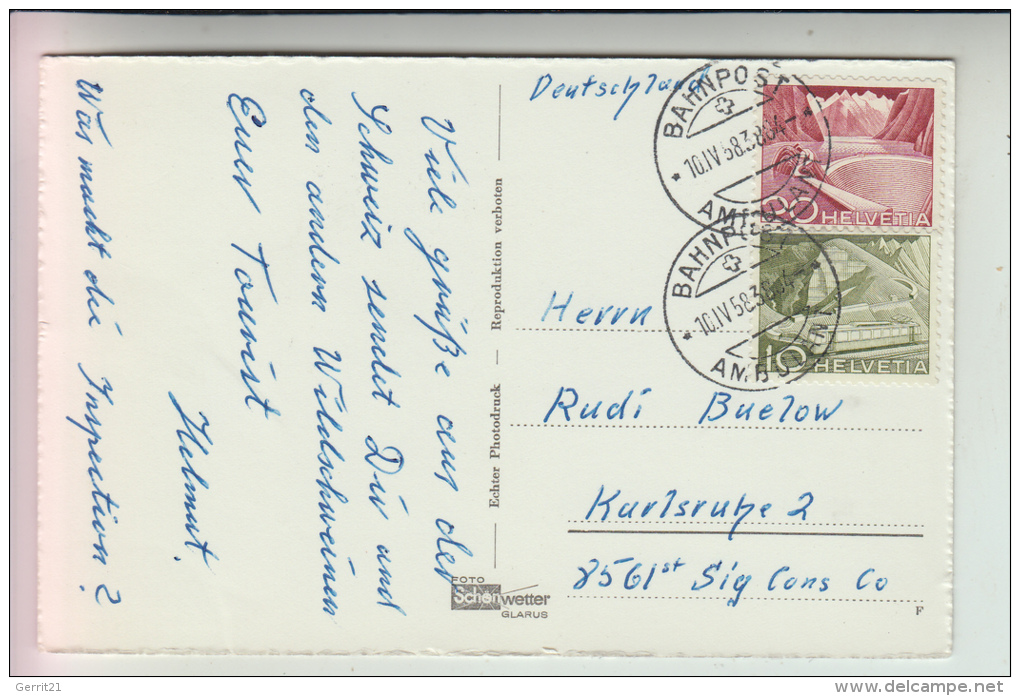 Viele grüße aus der
Schweiz sendet Dir und
den andern Wildschweinen
Euer Tourist
Helmut.
Was macht die Inspection?
Echter Photodruck — Reproduktion verboten
FOTO
Schönwetter
GLARUS
Deutschland
BAHNPOST
10.IV 58.3864
AMBULANT
20 HELVETIA
BAHNPOST
10.IV 58.3864
AMBULANT
10 HELVETIA
Herrn
Rudi Buelow
Karlsruhe 2
8561st Sig Cons Co
F
Gerrit21
www.delcampe.net